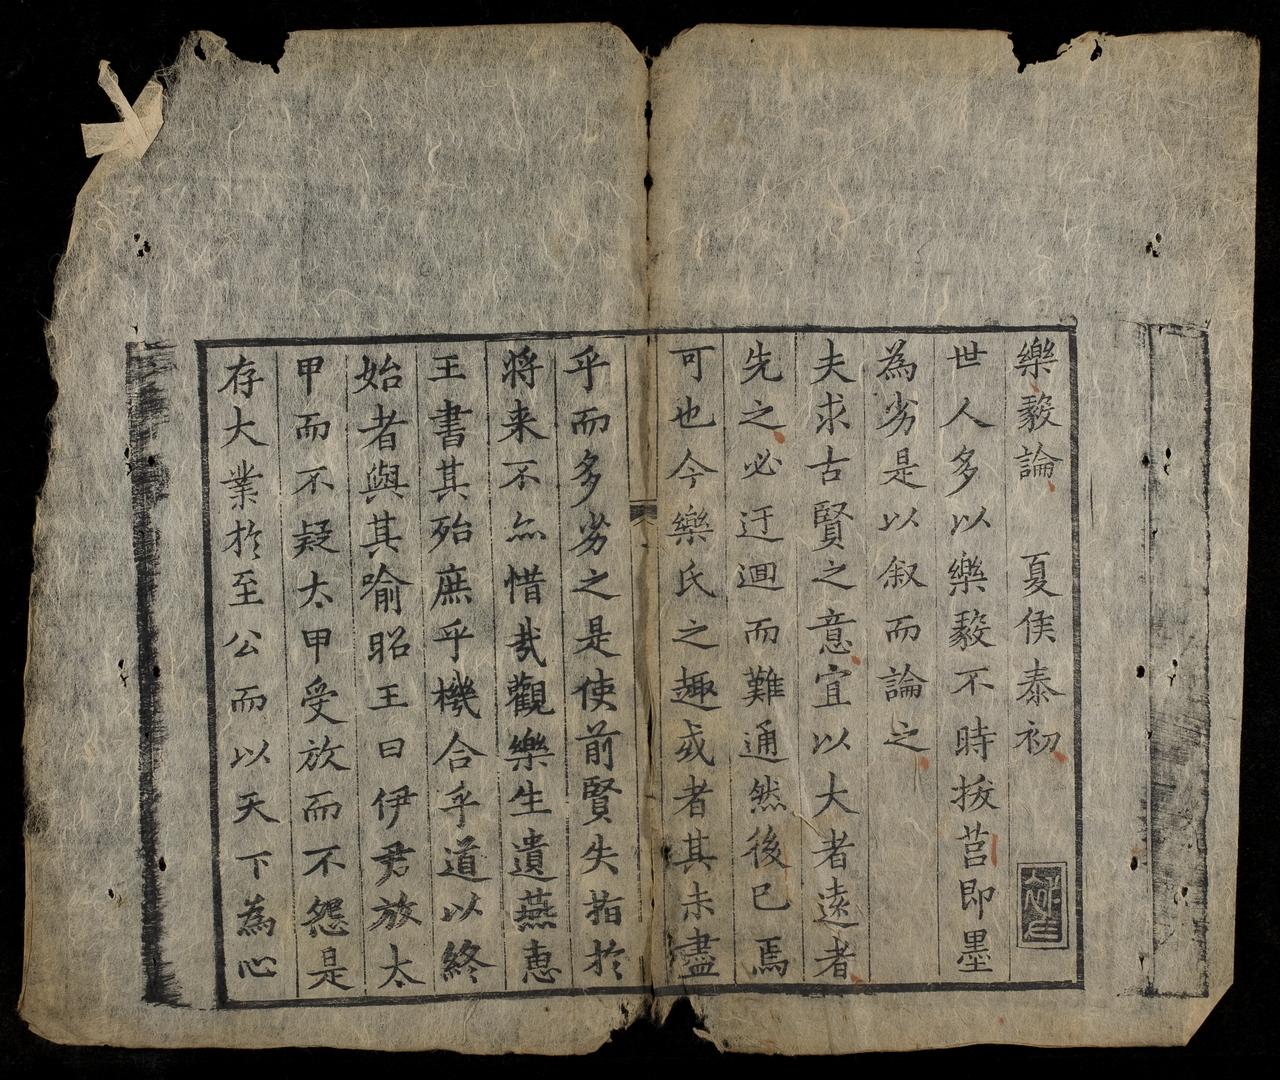 樂毅論 夏侯泰初
世人多以樂毅不時拔莒即墨
為劣是以叙而論之
夫求古賢之意宜以大者遠者
先之必迂迴而難通然後已焉
可也今樂氏之趣或者其未盡
乎而多劣之是使前賢失指於
将来不亦惜㢤觀樂生遺燕惠
王書其殆庶乎機合乎道以終
始者與其喻昭王曰伊尹放太
甲而不疑太甲受放而不怨是
存大業於至公而以天下為心